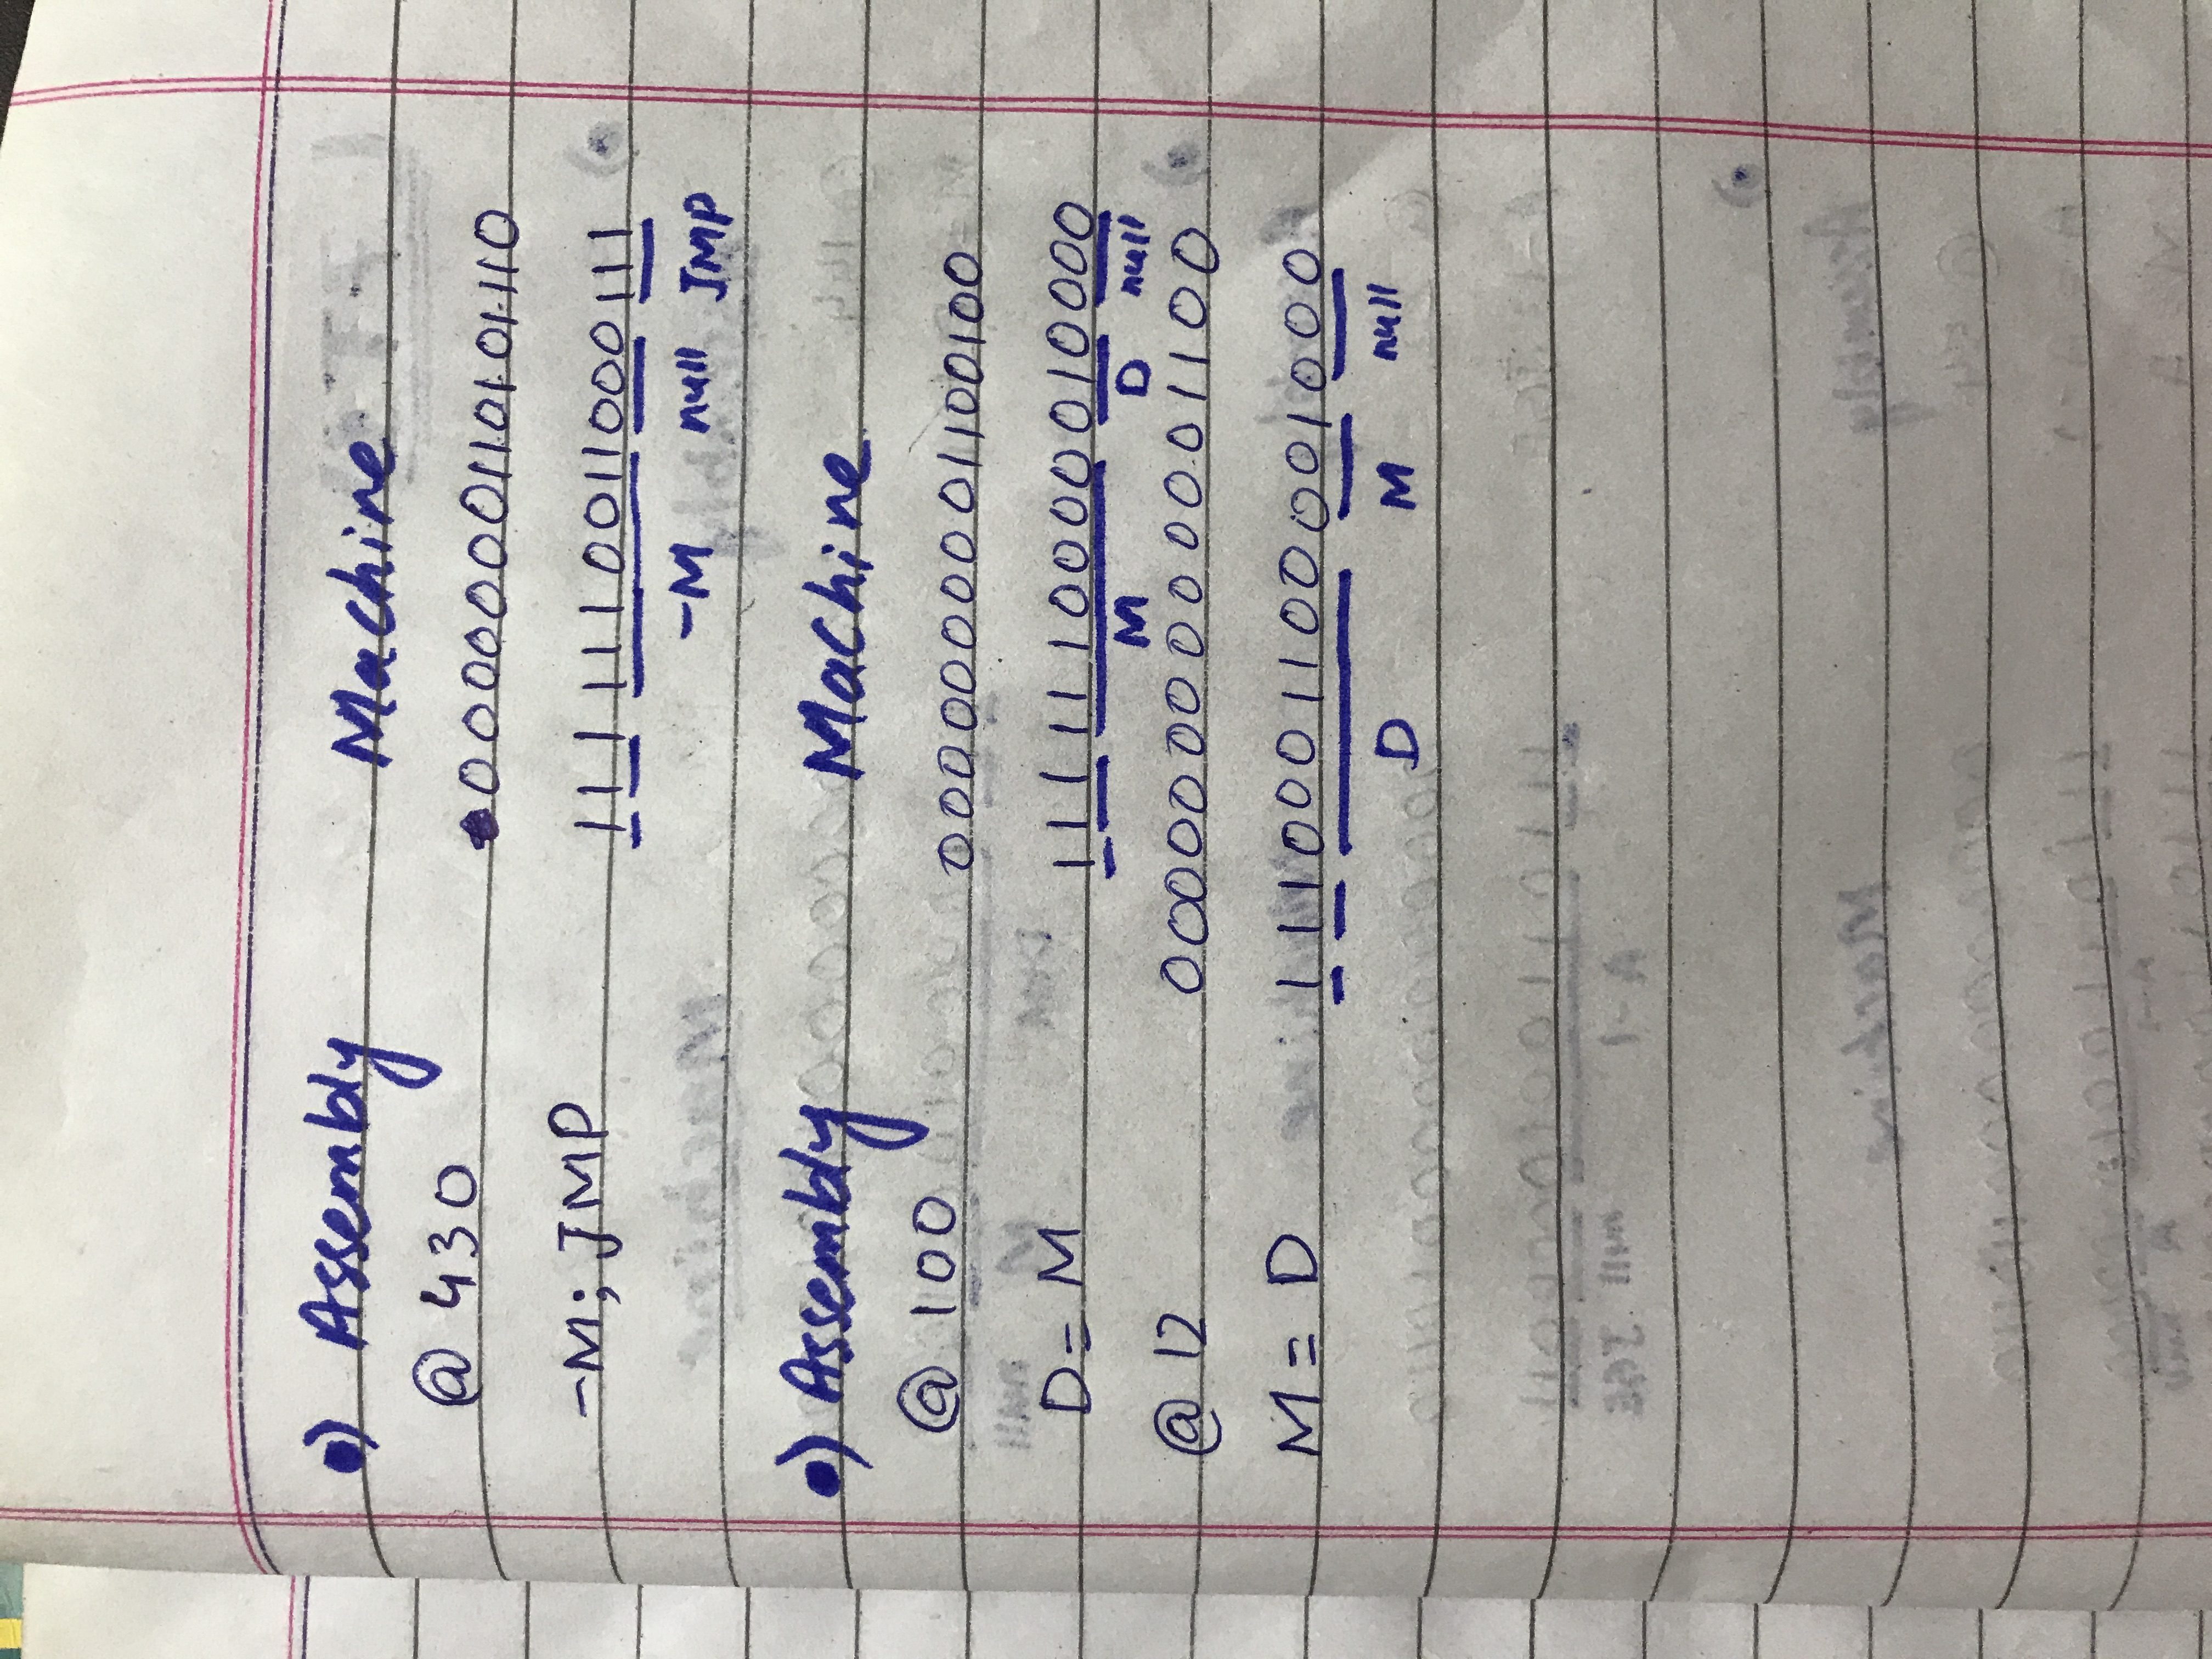 •) Assembly Machine
@ 430 0000000110101110
-M; JMP 1111110011000111
-M null JMP
•) Assembly Machine
@ 100 0000000001100100
D = M 1111110000010000
M D null
@ 12 0000000000001100
M = D 1110001100001000
D M null